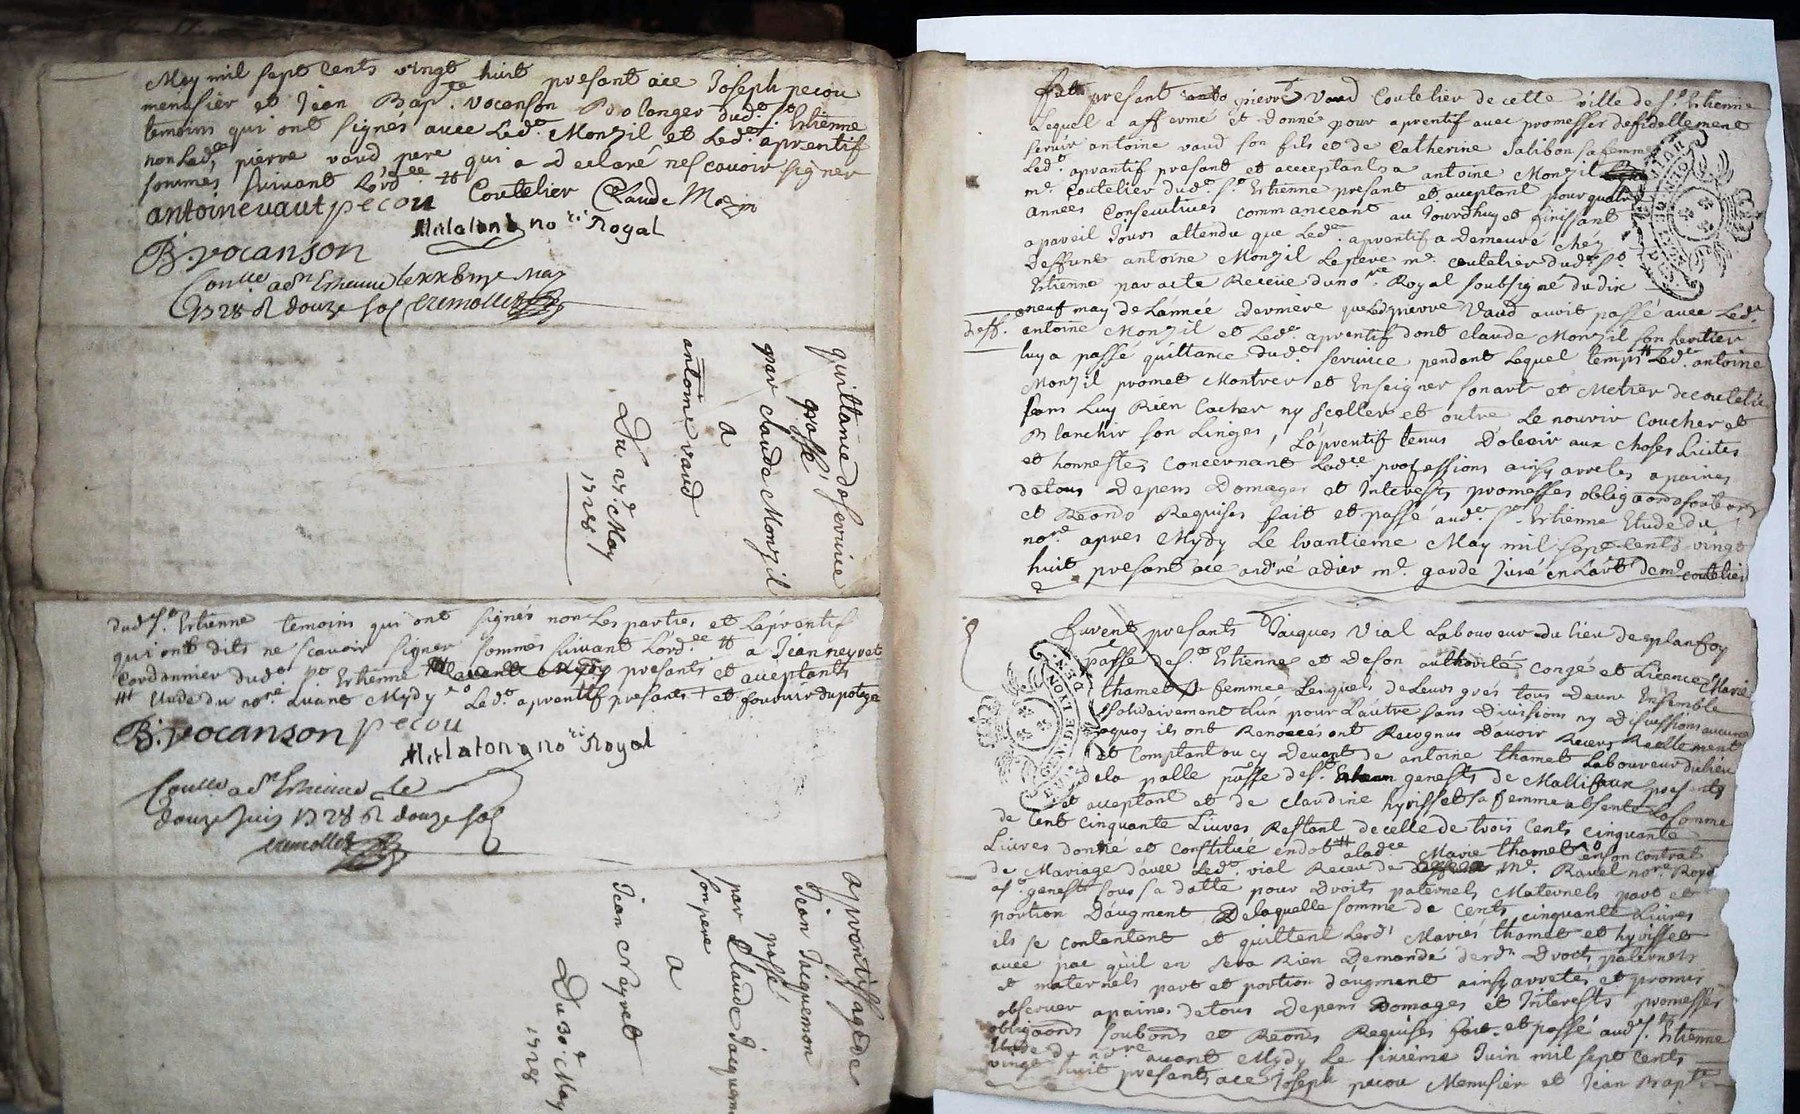 May mil sept cents vingt huit presant a ce Joseph pecou
menusier et Jean Bapte. vocanson Boolanger dud. St Estienne
temoins qui ont signés avec Led. Monzil et Led. aprentif
non Led. pierre vaud pere qui a Declaré ne scavoir signer
sommés suivant Lord.ce # Coutelier Claude Mozin
antoine vaut pecou
B. vocanson
Mulaton no.re Royal
Con.llé a St Estienne le May
1728 R douze sols
quittance de service
passé
par claude Monzil
a
antoine vaud
Du 27.e May
1728
dud. St. Estienne temoins qui ont signés non Les parties et Laprentif
qui ont dits ne scavoir signer sommés suivant Lord.ce # a Jean neyret
Cordonnier dud. St Estienne presants et acceptants
# Etude du no.re avant Mydy Led. aprentif presant + et fournir du potage
B. vocanson pecou
Mulaton no.re Royal
Con.llé a St Estienne le
douze Juin 1728 R douze sols
aprentissage de
Jean Jaquemon
passé
par Claude Jaquemon
son pere
a
Jean Neyret
Du 30.e May
1728
fut presant pierre vaud Coutelier de cette ville de St. Estienne
Lequel a affermé et donné pour aprentif avec promesse de fidellement
servir antoine vaud son fils et de Catherine Jalibon sa femme
Led. aprantif presant et acceptant a antoine Monzil
m.e Coutelier dud. St. Estienne presant et acceptant pour quatre
années Consecutives commanceant au Jourdhuy et finissant
a pareil Jours attendu que Led. aprentif a Demeuré chéz
Deffunt antoine Monzil Le pere m.e coutelier dud. St
Estienne par acte Receue du no.re Royal soubsigné du dix
neuf may de Lannée derniere que Led. pierre Vaud avoit passé avec Led.
deff. antoine Monzil et Led. aprentif dont claude Monzil son heritier
luy a passé quittance dud. service pendant Lequel temps # Led. antoine
Monzil promet Montrer et Enseigner son art et Metier de coutelier
sans Luy Rien Cacher ny Sceller et outre Le nourir Coucher et
Blanchir son Linges, Laprentif tenus Dobeir aux choses Licites
et honnestes Concernant Lad.ce professions ainsy arretes a paines
de tous Depens Domages et Interests promesses obligaons soubons
et Reons Requises fait et passé aud. St. Estienne Etude du
no.re apres Mydy Le May mil sept cents vingt
huit presant a ce andré adier m.e garde Juré en Lart de m.e coutelier
furent presants Jacques Vial Laboureur du lieu de planfoy
pásse de St. Estienne et de son authorité congé et Licence Marie
thamet sa femme Lesquels de Leurs grés tous deux Ensemble
solidairement Lun pour Lautre sans Divisions ny Discussions aucune
aquoy ils ont Renoncés ont Recognus Davoir Receus Reellement
et Comptant ou cy devant de antoine thamet Laboureur du lieu
de la palle pásse de St. genest de Mallifaux presant
et acceptant et de claudine hyvisset sa femme absente La somme
de Cent cinquante Livres Restant de celle de trois Cents cinquante
Livres donné et constitué en dot # a lad.ce Marie thamet en son contrat
de Mariage d'avec Led. vial Receu de m.e Ravel no.re Royal
a St. genest sous sa datte pour Droits paternels Maternels part et
portion Daugment De laquelle somme de cents cinquante Livres
ils se contentent et quittent Lesd. Maries thamet et hyvisset
avec pac qu'il en sera Rien Demandé desd. Droits paternels
et maternels part et portion d'augment ainsy arretés et promis
observer a paines de tous Depens Domages et Interests promesses
obligaons soubons et Reons Requises fait et passé aud. St. Estienne
Etude du no.re avant Mydy Le sixieme Juin mil sept Cents
vingt huit presants a ce Joseph pecou Menusier et Jean Bapte.